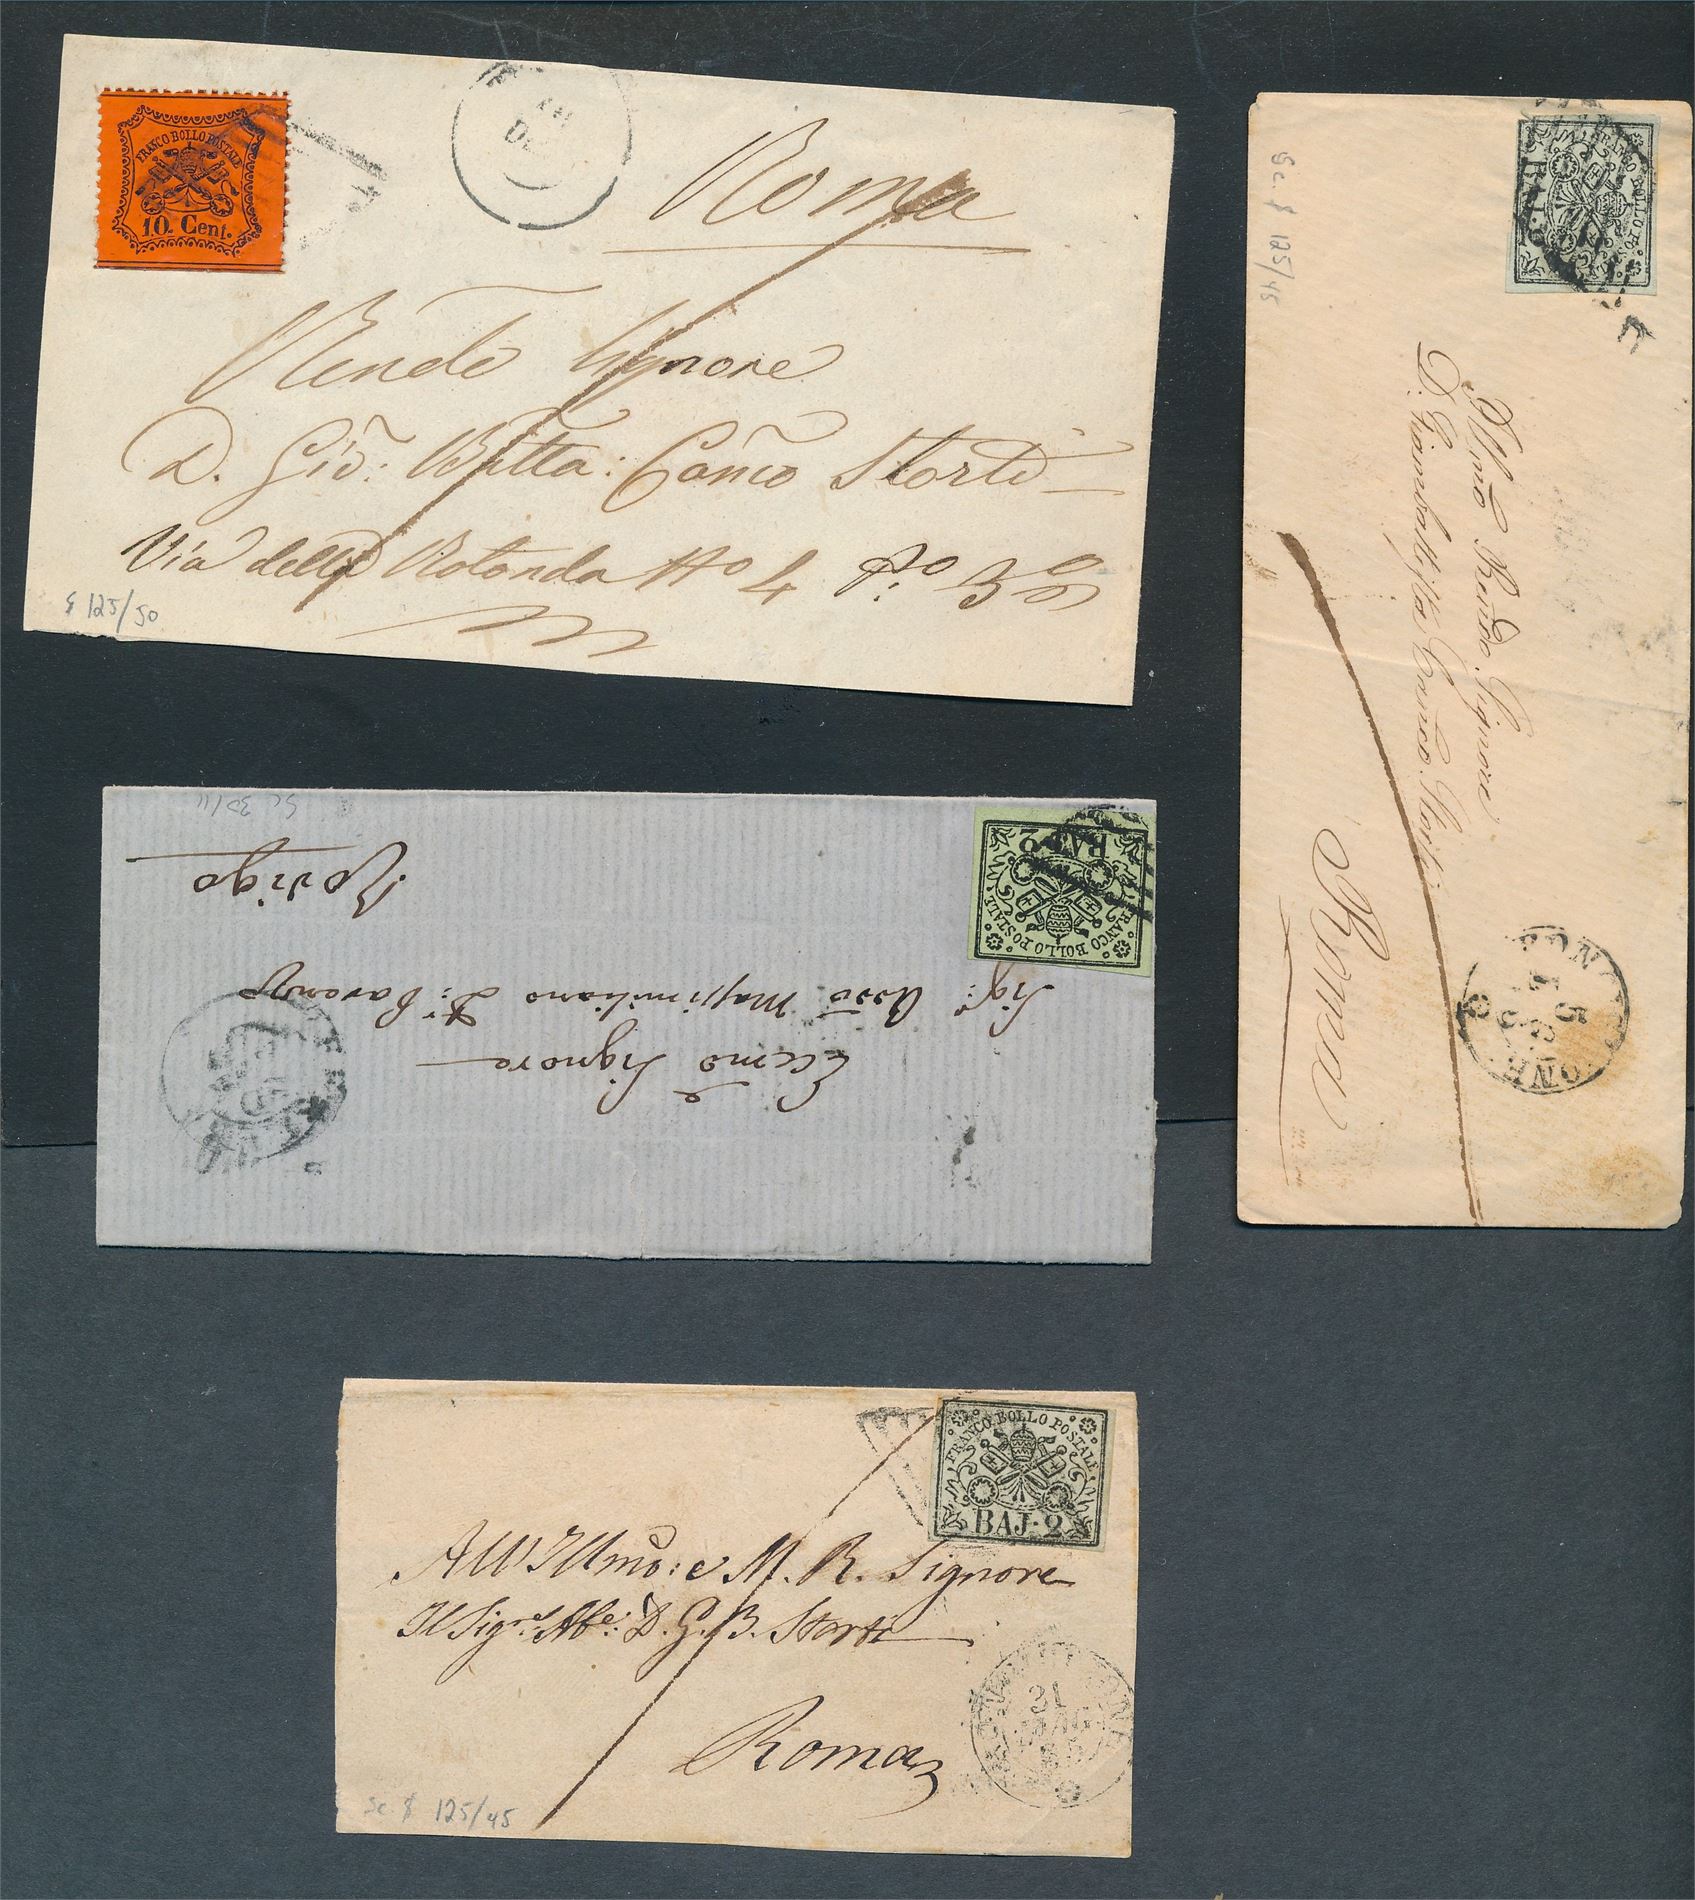 FRANCO BOLLO POSTALE
10. Cent.
Roma
Rendo Signore
D. Gio: Batta: Canco Storti
Via della Rotonda No 4 Po 3o
$ 125/50
Sc. $ 125/45
FRANCO BOLLO POSTALE
BAJ
Illmo Rendo. Signore
D. Giambattista Canco. Storti
Roma
15
Sc 30/11
FRANCO BOLLO POSTALE
BAJ 2
Rovigo
Eccmo Signore
Sigr: Massimiliano
FRANCO BOLLO POSTALE
BAJ·2
All'Illmo: e M. R. Signore
Il Sigre: Abe: D. G. B. Storti
Roma
FROSINONE
21
MAG
Sc $ 125/45